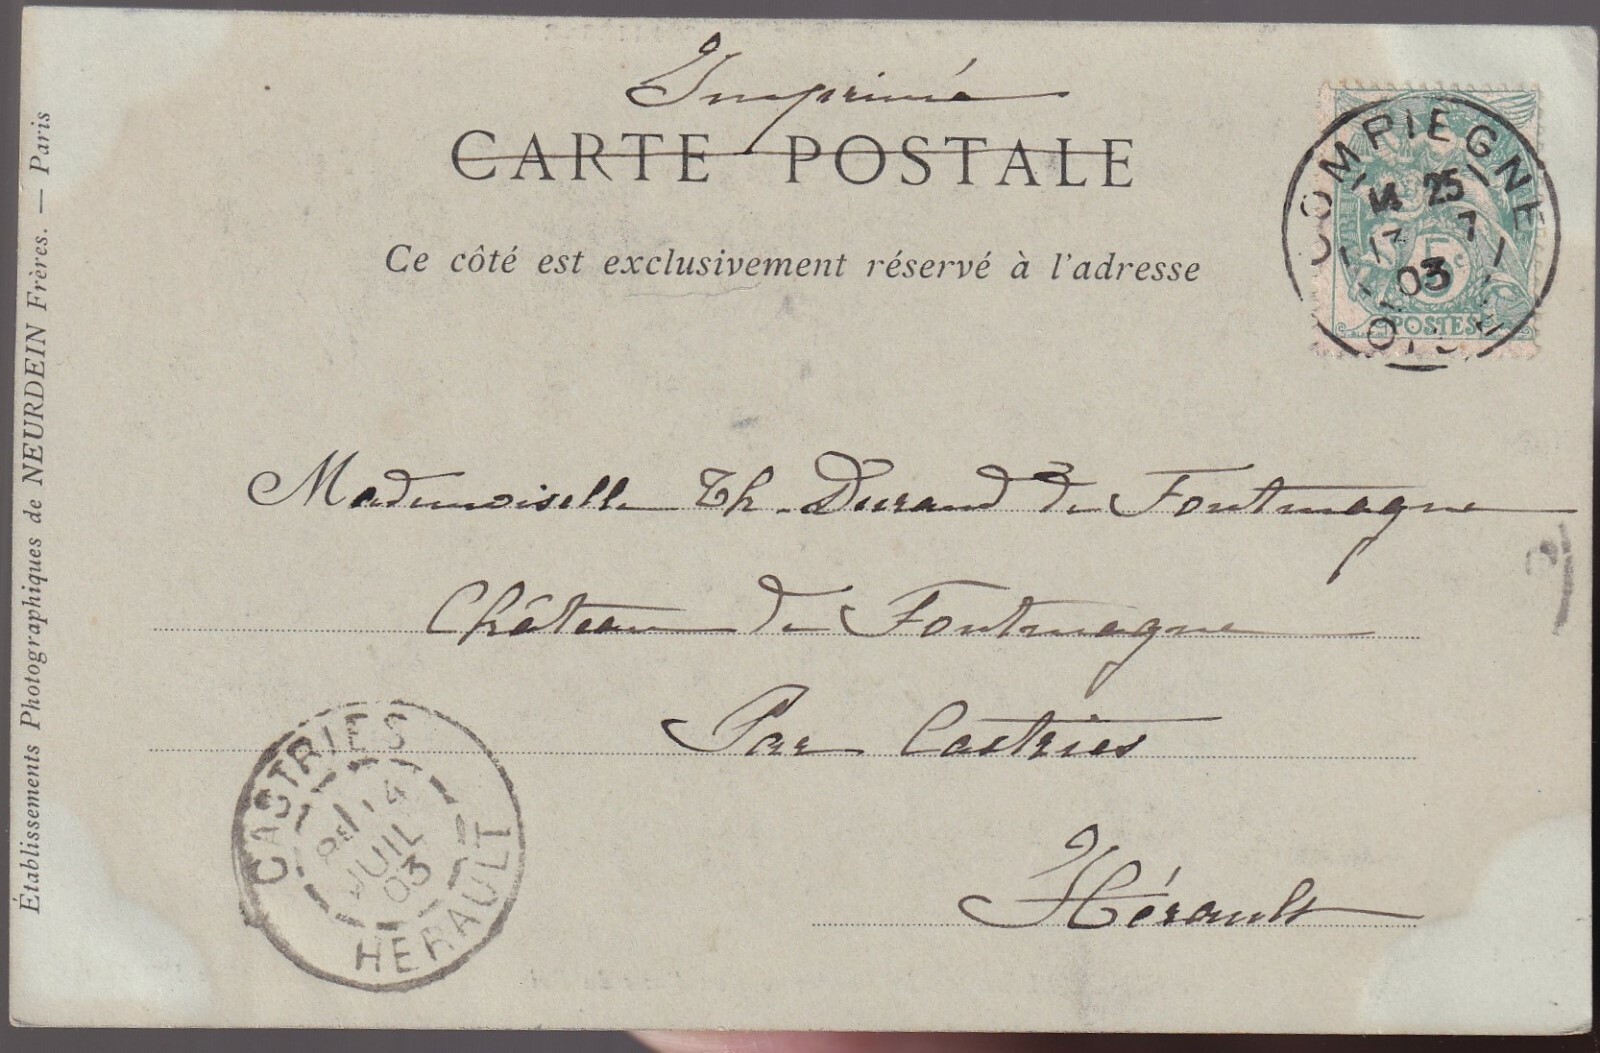 Imprimé
CARTE POSTALE
Ce côté est exclusivement réservé à l'adresse
COMPIEGNE
14 25
13 7
03
OISE
5c
POSTES
Mademoiselle Th. Durand de Fontmagne
Château de Fontmagne
Par Castries
Hérault
CASTRIES
14
JUIL
03
HERAULT
Établissements Photographiques de NEURDEIN Frères. — Paris